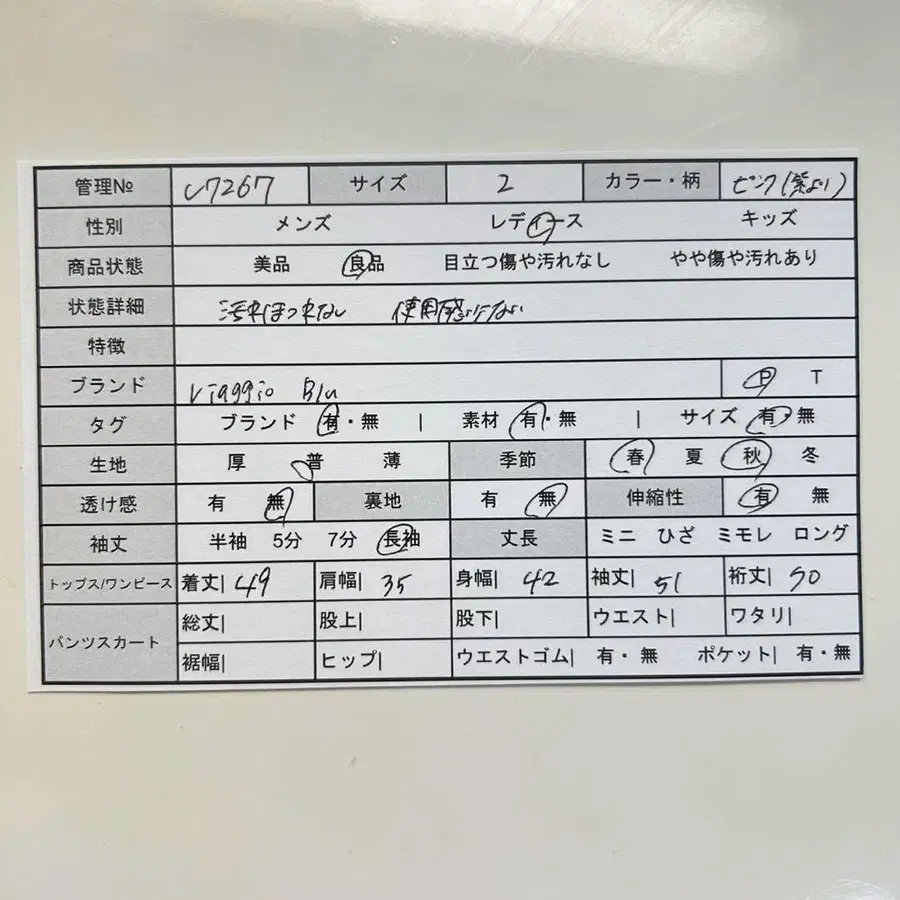 管理№ し7267 サイズ 2 カラー・柄 ピンク(紫より)
性別 メンズ レディース キッズ
商品状態 美品 良品 目立つ傷や汚れなし やや傷や汚れあり
状態詳細 汚れほつれなし 使用感少ない
特徴
ブランド Viaggio Blu P T
タグ ブランド 有・無 | 素材 有・無 | サイズ 有・無
生地 厚 普 薄 季節 春 夏 秋 冬
透け感 有 無 裏地 有 無 伸縮性 有 無
袖丈 半袖 5分 7分 長袖 丈長 ミニ ひざ ミモレ ロング
トップス/ワンピース 着丈| 49 肩幅| 35 身幅| 42 袖丈| 51 裄丈| 70
パンツスカート 総丈| 股上| 股下| ウエスト| ワタリ|
裾幅| ヒップ| ウエストゴム| 有・無 ポケット| 有・無